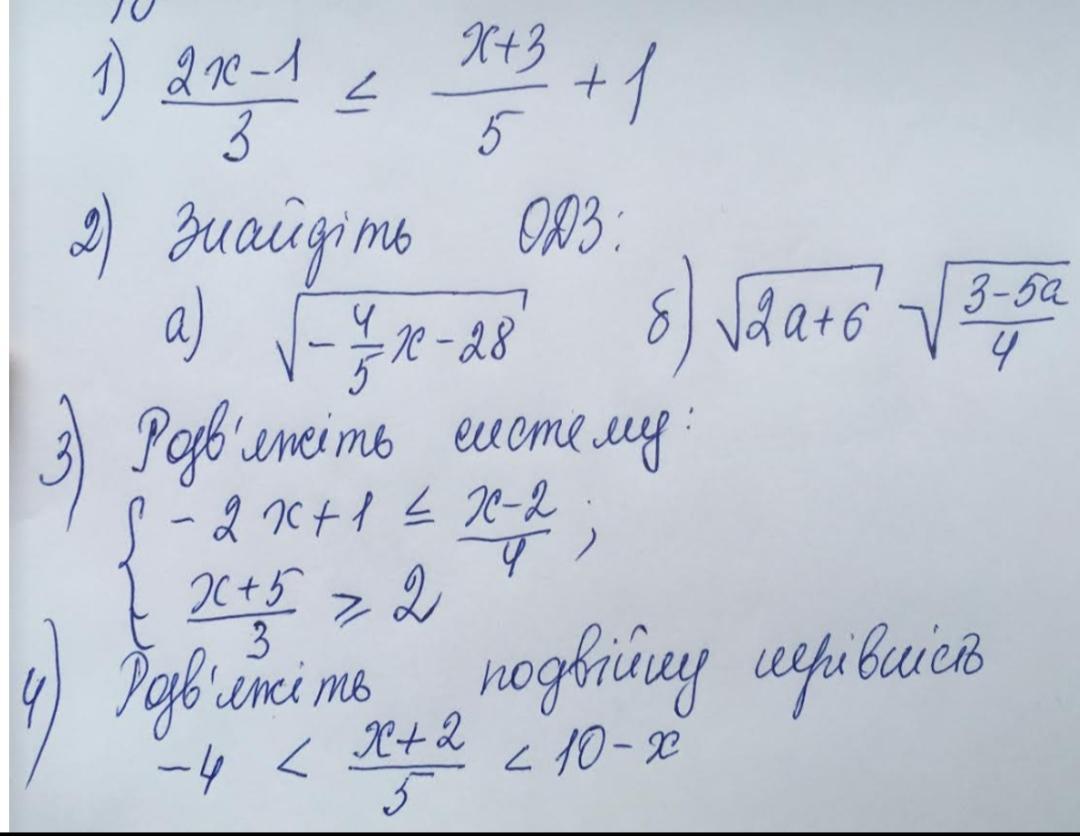 1) (2x-1)/3 ≤ (x+3)/5 + 1
2) Знайдіть ОДЗ:
а) √(-4/5 x - 28) б) √(2a+6) - √((3-5a)/4)
3) Розв'яжіть систему:
{ -2x+1 ≤ (x-2)/4 ;
(x+5)/3 ≥ 2
4) Розв'яжіть подвійну нерівність
-4 < (x+2)/5 < 10-x